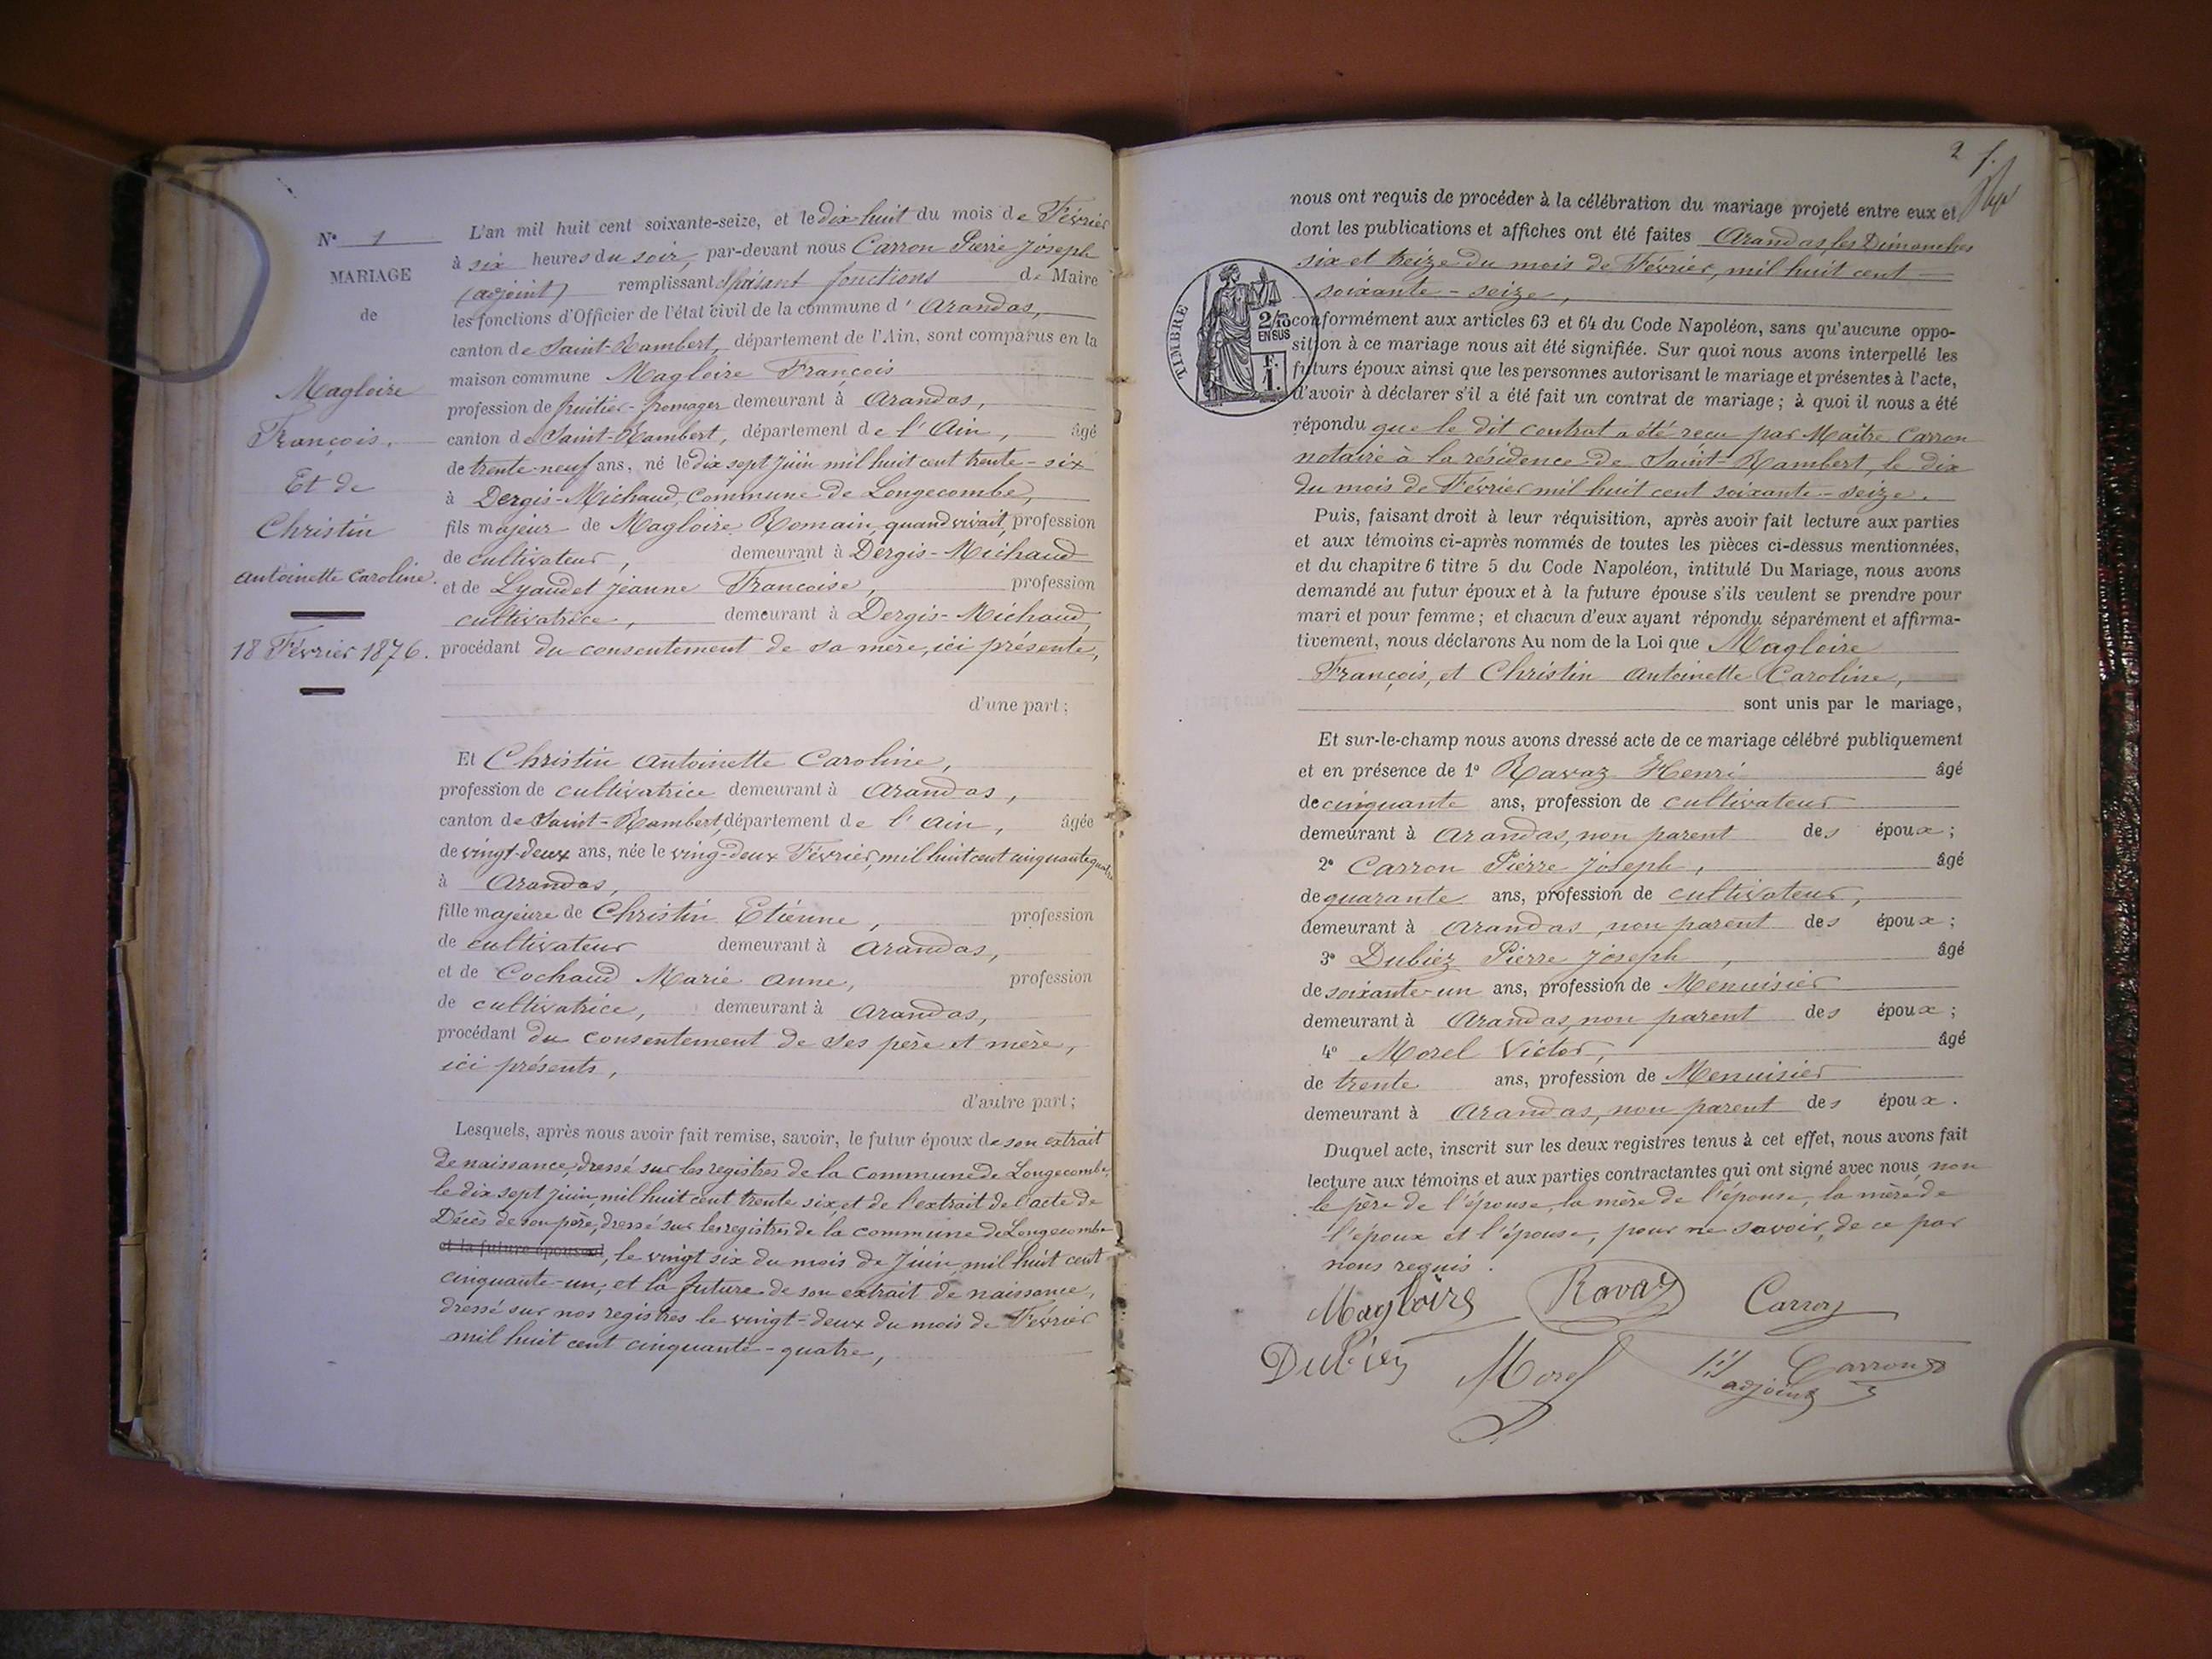 N° 1
MARIAGE
de
Magloire
François.
Et de
Christin
Antoinette Caroline.
18 Février 1876.
L'an mil huit cent soixante-seize, et le dix huit du mois de Février
à six heures du soir, par-devant nous Carron Pierre Joseph
(adjoint) remplissant faisant fonctions de Maire
les fonctions d'Officier de l'état civil de la commune d'Arandas,
canton de Saint-Rambert, département de l'Ain, sont comparus en la
maison commune Magloire François
profession de fruitier-fromager demeurant à Arandas,
canton de Saint-Rambert, département de l'Ain, âgé
de trente-neuf ans, né le dix sept Juin mil huit cent trente-six
à Dergis-Michaud, Commune de Longecombe,
fils majeur de Magloire Romain, quand vivait, profession
de cultivateur, demeurant à Dergis-Michaud
et de Lyaudet Jeanne Francoise, profession
cultivatrice, demeurant à Dergis-Michaud,
procédant du consentement de sa mère, ici présente,
d'une part;
Et Christin Antoinette Caroline,
profession de cultivatrice demeurant à Arandas,
canton de Saint-Rambert, département de l'Ain, âgée
de vingt-deux ans, née le ving-deux Février, mil huit cent cinquante quatre
à Arandas,
fille majeure de Christin Etienne, profession
de cultivateur demeurant à Arandas,
et de Cochaud Marie Anne, profession
de cultivatrice, demeurant à Arandas,
procédant du consentement de ses père et mère,
ici présents,
d'autre part;
Lesquels, après nous avoir fait remise, savoir, le futur époux de son extrait
de naissance, dressé sur les registres de la Commune de Longecombe,
le dix sept Juin, mil huit cent trente six, et de l'extrait de l'acte de
Décès de son père, dressé sur les registres de la commune de Longecombe
et la future épouse, le vingt six du mois de Juin mil huit cent
cinquante-un, et la future de son extrait de naissance,
dressé sur nos registres le vingt-deux du mois de Février
mil huit cent cinquante-quatre,
2
nous ont requis de procéder à la célébration du mariage projeté entre eux et
dont les publications et affiches ont été faites Arandas, les Dimanches
six et treize du mois de Février, mil huit cent
soixante-seize,
TIMBRE
2/10
EN SUS
F.
1.
conformément aux articles 63 et 64 du Code Napoléon, sans qu'aucune oppo-
sition à ce mariage nous ait été signifiée. Sur quoi nous avons interpellé les
futurs époux ainsi que les personnes autorisant le mariage et présentes à l'acte,
d'avoir à déclarer s'il a été fait un contrat de mariage; à quoi il nous a été
répondu que le dit contrat a été reçu par Maître Carron
notaire à la résidence de Saint-Rambert, le dix
du mois de Février mil huit cent soixante-seize.
Puis, faisant droit à leur réquisition, après avoir fait lecture aux parties
et aux témoins ci-après nommés de toutes les pièces ci-dessus mentionnées,
et du chapitre 6 titre 5 du Code Napoléon, intitulé Du Mariage, nous avons
demandé au futur époux et à la future épouse s'ils veulent se prendre pour
mari et pour femme; et chacun d'eux ayant répondu séparément et affirma-
tivement, nous déclarons Au nom de la Loi que Magloire
François, et Christin Antoinette Caroline,
sont unis par le mariage,
Et sur-le-champ nous avons dressé acte de ce mariage célébré publiquement
et en présence de 1° Ravaz Henri âgé
de cinquante ans, profession de cultivateur
demeurant à Arandas, non parent des époux;
2° Carron Pierre Joseph, âgé
de quarante ans, profession de cultivateur,
demeurant à Arandas non parent des époux;
3° Dubiez Pierre Joseph, âgé
de soixante-un ans, profession de Menuisier
demeurant à Arandas, non parent des époux;
4° Morel Victor, âgé
de trente ans, profession de Menuisier
demeurant à Arandas, non parent des époux.
Duquel acte, inscrit sur les deux registres tenus à cet effet, nous avons fait
lecture aux témoins et aux parties contractantes qui ont signé avec nous, non
le père de l'épouse, la mère de l'épouse, la mère de
l'époux et l'épouse, pour ne savoir, de ce par
nous requis.
Magloire Ravaz Carron
Dubiez Morel Carron
adjoint